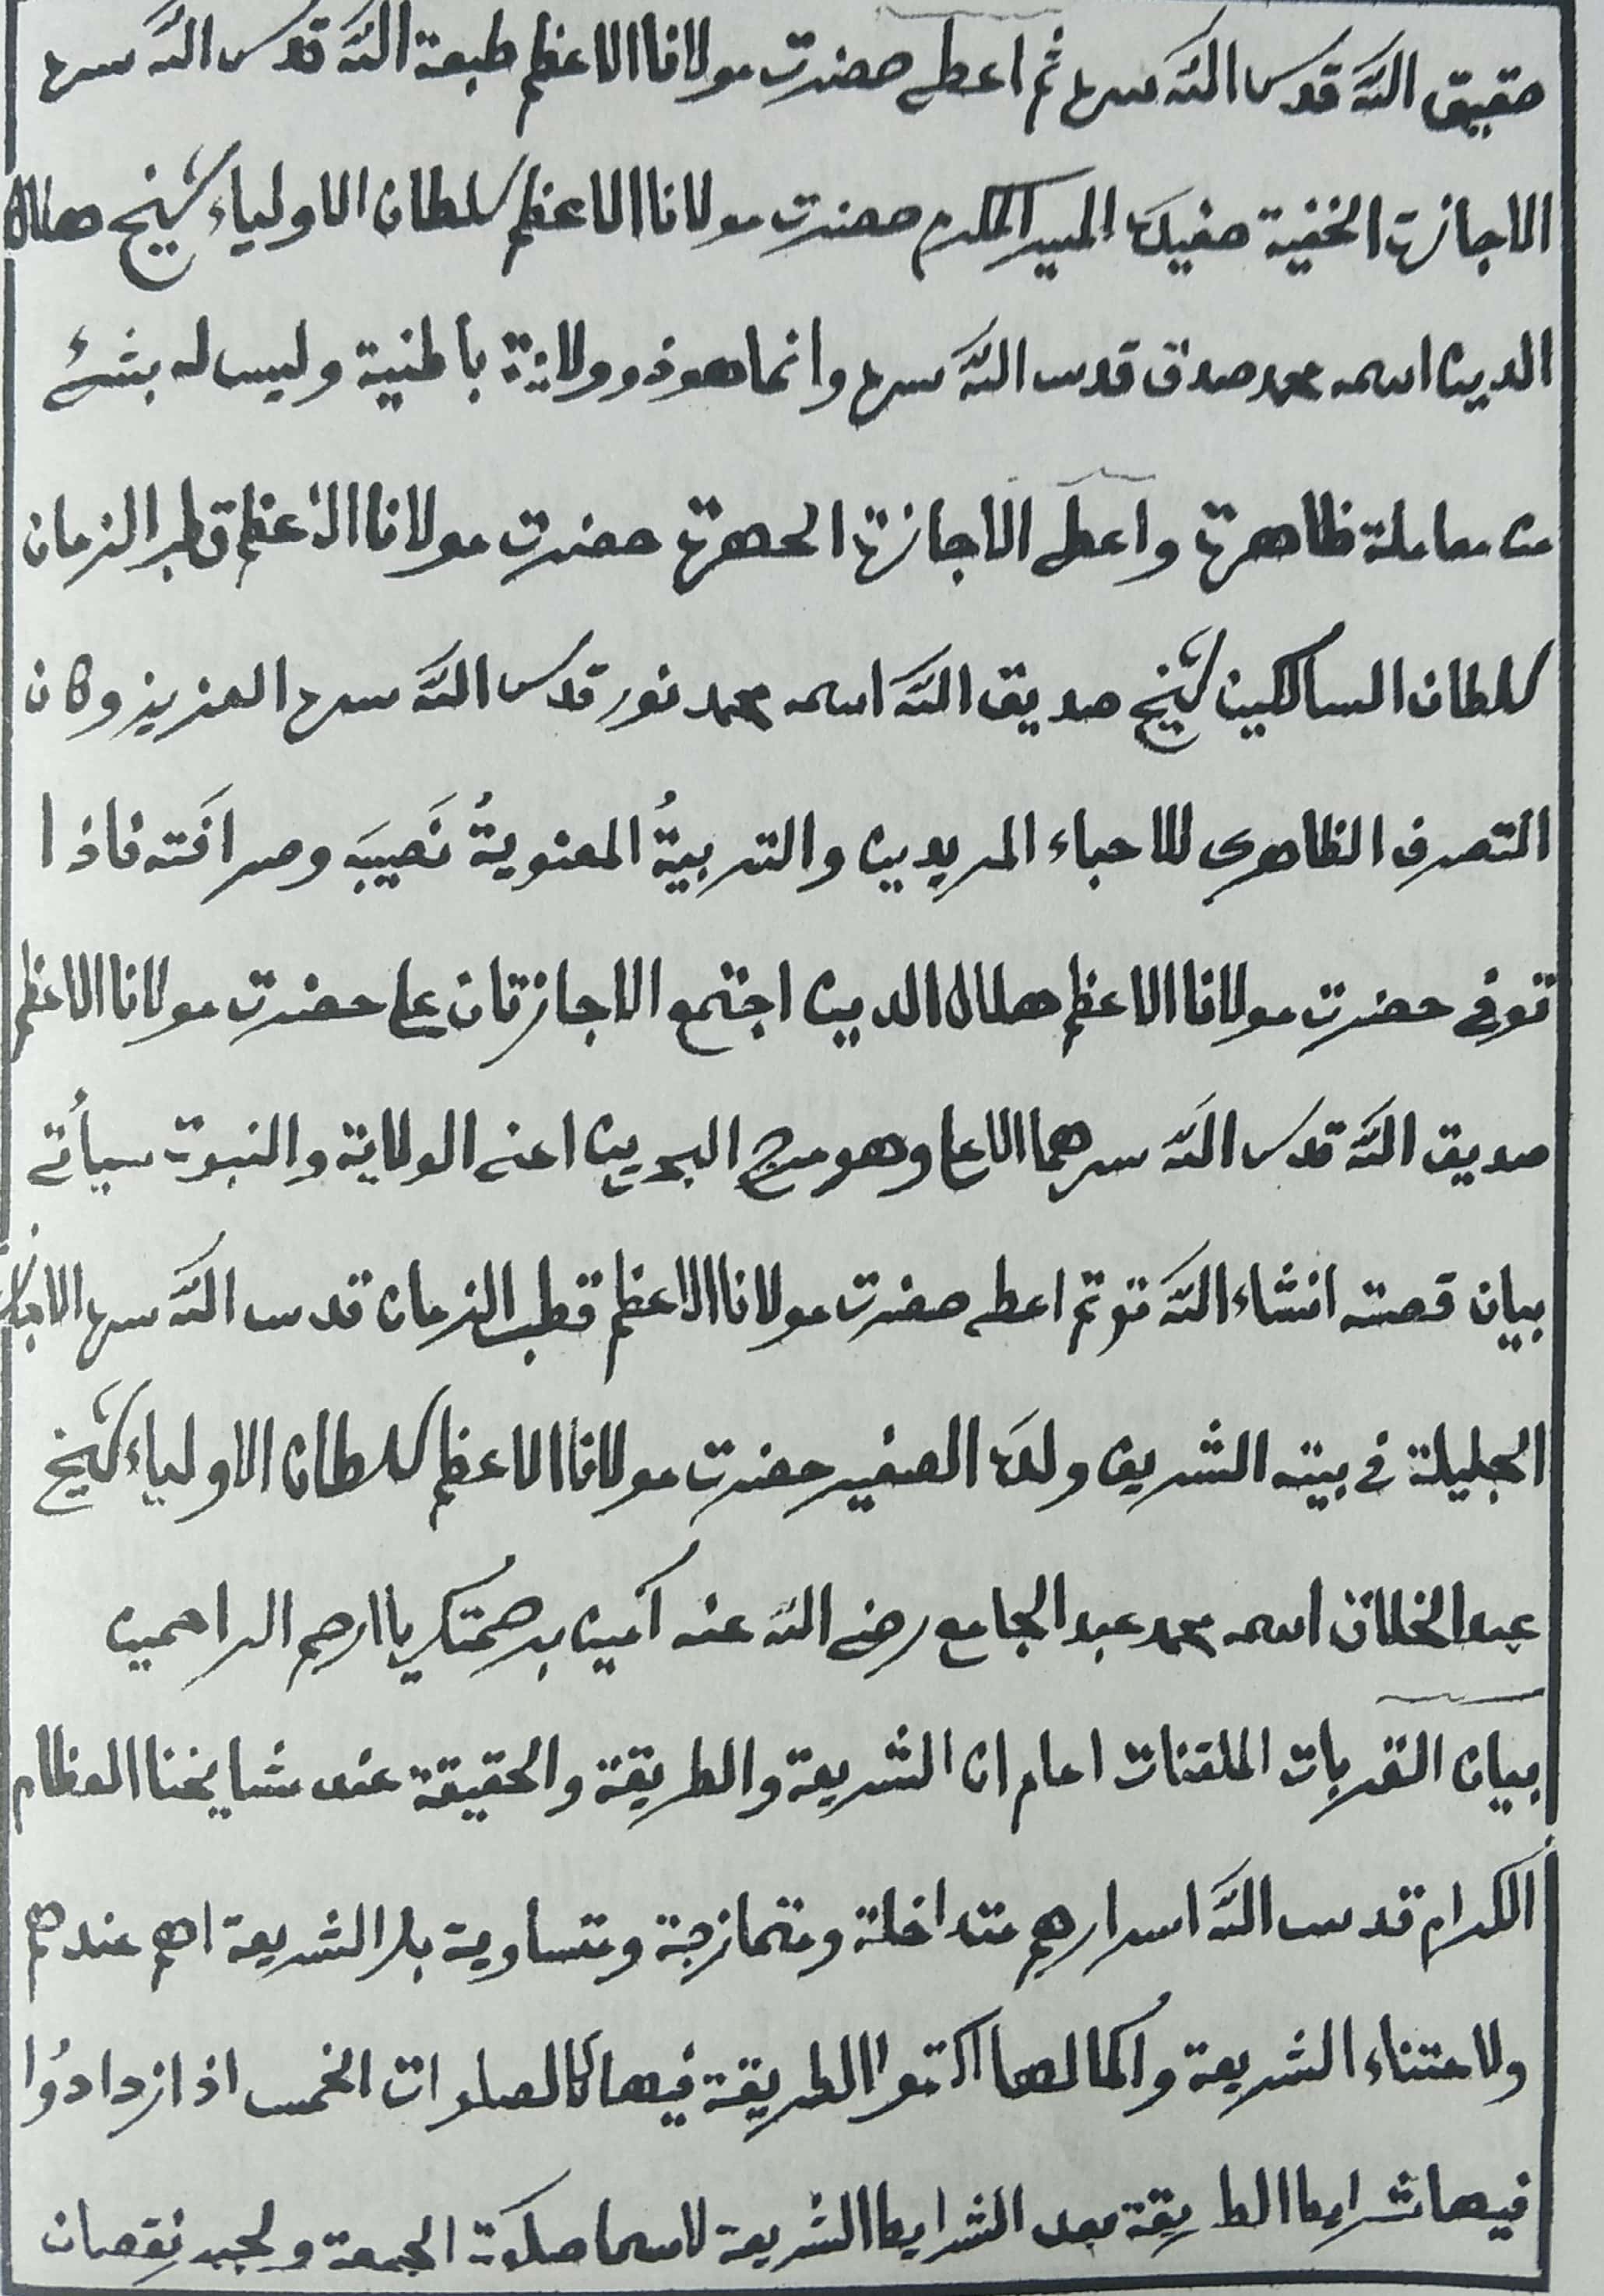 حقيق اللّٰه قدس اللّٰه سره ثم اعطى حضرت مولانا الاعظم طبعة اللّٰه قدس اللّٰه سره
الاجازة الخفية حفيده السيد المكرم حضرت مولانا الاعظم سلطان الاولياء شيخ هلال
الدين اسمه محمد صدق قدس اللّٰه سره وانما هو ذو ولاية باطنية وليس له بشئ
من معاملة ظاهرة واعطى الاجازة الجهرة حضرت مولانا الاعظم قطب الزمان
سلطان السالكين شيخ صديق اللّٰه اسمه محمد نور قدس اللّٰه سره العزيز وكان
التصرف الظاهرى للاحباء المريدين والتربيةُ المعنويةُ نَصيبَه وصرافَته فاذا
توفى حضرت مولانا الاعظم هلال الدين اجتمع الاجازتان على حضرت مولانا الاعظم
صديق اللّٰه قدس اللّٰه سرهما الاعلى وهو مرج البحرين اعنى الولاية والنبوة سيأتى
بيان قصته انشاء اللّٰه تو ثم اعطى حضرت مولانا الاعظم قطب الزمان قدس اللّٰه سره الاجازة
الجليلة فى بيته الشريف ولده الصغير حضرت مولانا الاعظم سلطان الاولياء شيخ
عبد الخلاق اسمه محمد عبد الجامع رضى اللّٰه عنه آمين برحمتك يا ارحم الراحمين
بيان القربات الملقنات اعلم ان الشريعة والطريقة والحقيقة عند مشايخنا العظام
الكرام قدس اللّٰه اسرارهم متداخلة ومتمازجة ومتساوية بل الشريعة اهم عندهم
ولاعتناء الشريعة واكمالها اكتموا الطريقة فيها كالصلوات الخمس اذ ازدادُوا
فيها شرايط الطريقة بعد الشرايط الشريعة لاسيما صلوة الجمعة ولجبر نقصان